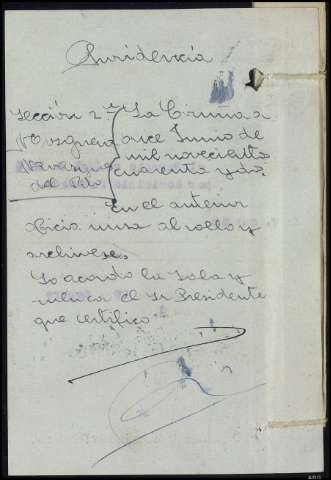 Providencia
Sección 2ª
La Coruña a
Mosquera
once Junio de
Navasques
mil novecientos
del Río
cuarenta y dos
En el anterior
oficio unase al rollo y
archivese.
Lo acordó la Sala y
rubrica el Sr Presidente
que certifico.